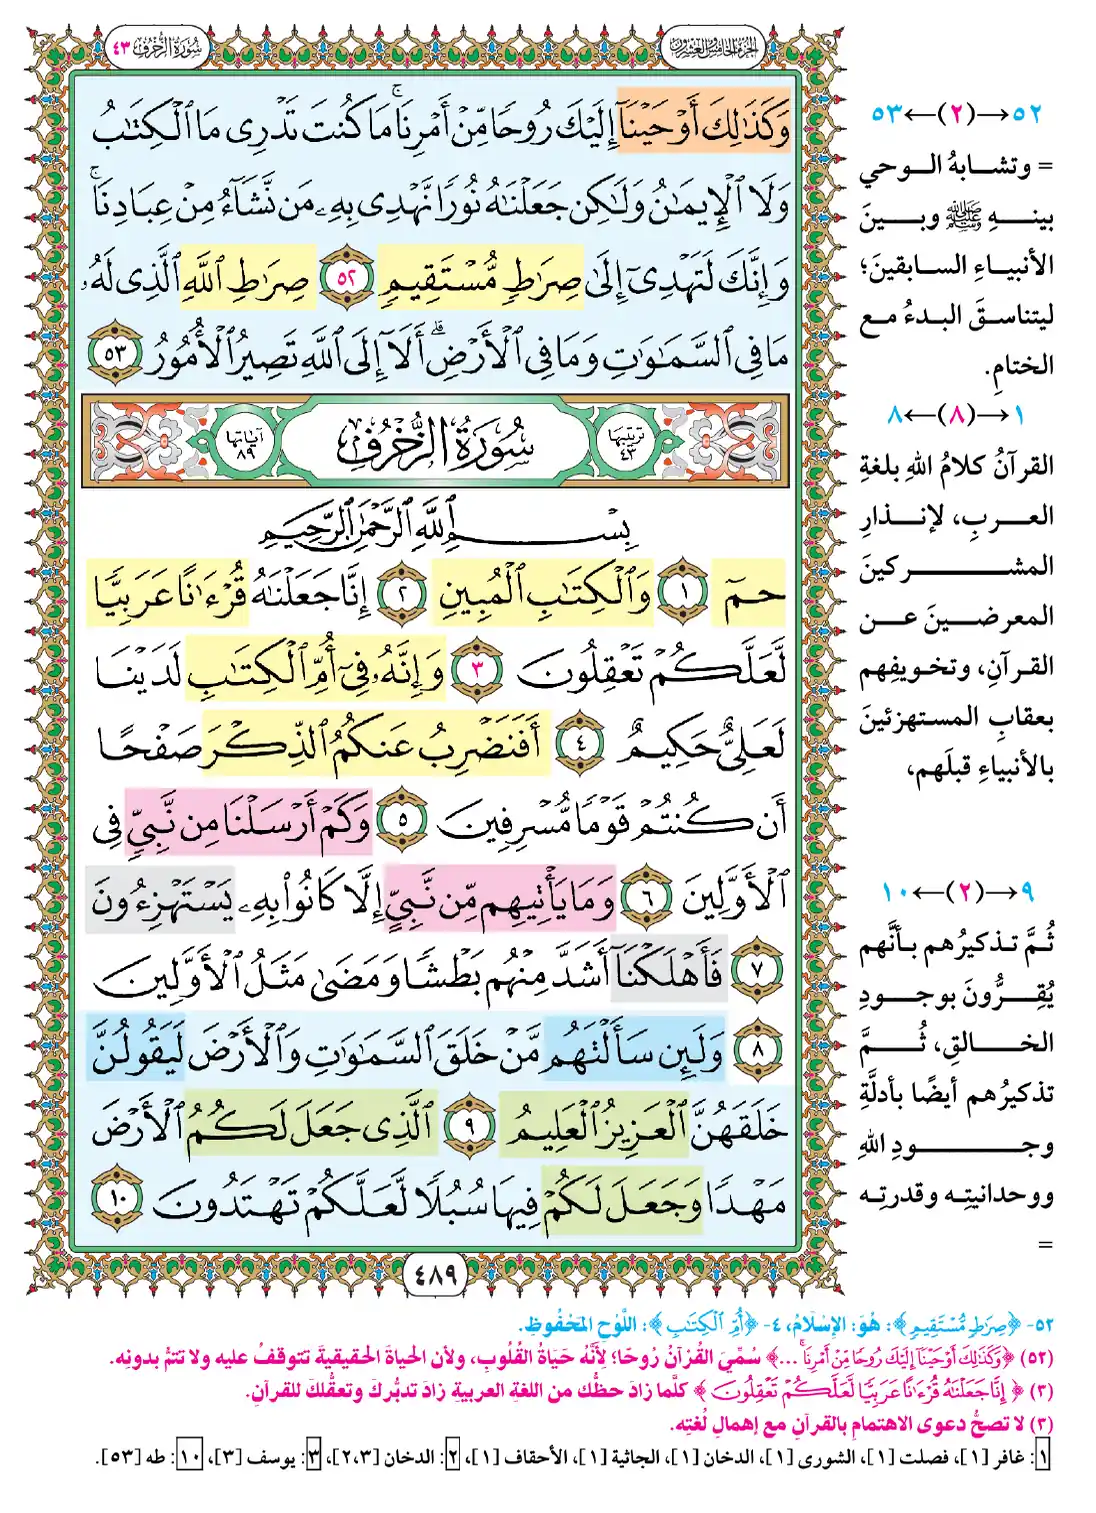 سُورَةُ الزُّخْرُفِ ٤٣
الجُزْءُ الخَامِسُ وَالعِشْرُونَ
وَكَذَٰلِكَ أَوْحَيْنَآ إِلَيْكَ رُوحًا مِّنْ أَمْرِنَا ۚ مَا كُنتَ تَدْرِى مَا ٱلْكِتَٰبُ
وَلَا ٱلْإِيمَٰنُ وَلَٰكِن جَعَلْنَٰهُ نُورًا نَّهْدِى بِهِۦ مَن نَّشَآءُ مِنْ عِبَادِنَا ۚ
وَإِنَّكَ لَتَهْدِىٓ إِلَىٰ صِرَٰطٍ مُّسْتَقِيمٍ ٥٢ صِرَٰطِ ٱللَّهِ ٱلَّذِى لَهُۥ
مَا فِى ٱلسَّمَٰوَٰتِ وَمَا فِى ٱلْأَرْضِ ۗ أَلَآ إِلَى ٱللَّهِ تَصِيرُ ٱلْأُمُورُ ٥٣
ترتيبها ٤٣ سُورَةُ الزُّخْرُفِ آياتها ٨٩
بِسْمِ ٱللَّهِ ٱلرَّحْمَٰنِ ٱلرَّحِيمِ
حمٓ ١ وَٱلْكِتَٰبِ ٱلْمُبِينِ ٢ إِنَّا جَعَلْنَٰهُ قُرْءَٰنًا عَرَبِيًّا
لَّعَلَّكُمْ تَعْقِلُونَ ٣ وَإِنَّهُۥ فِىٓ أُمِّ ٱلْكِتَٰبِ لَدَيْنَا
لَعَلِىٌّ حَكِيمٌ ٤ أَفَنَضْرِبُ عَنكُمُ ٱلذِّكْرَ صَفْحًا
أَن كُنتُمْ قَوْمًا مُّسْرِفِينَ ٥ وَكَمْ أَرْسَلْنَا مِن نَّبِىٍّ فِى
ٱلْأَوَّلِينَ ٦ وَمَا يَأْتِيهِم مِّن نَّبِىٍّ إِلَّا كَانُوا۟ بِهِۦ يَسْتَهْزِءُونَ
٧ فَأَهْلَكْنَآ أَشَدَّ مِنْهُم بَطْشًا وَمَضَىٰ مَثَلُ ٱلْأَوَّلِينَ
٨ وَلَئِن سَأَلْتَهُم مَّنْ خَلَقَ ٱلسَّمَٰوَٰتِ وَٱلْأَرْضَ لَيَقُولُنَّ
خَلَقَهُنَّ ٱلْعَزِيزُ ٱلْعَلِيمُ ٩ ٱلَّذِى جَعَلَ لَكُمُ ٱلْأَرْضَ
مَهْدًا وَجَعَلَ لَكُمْ فِيهَا سُبُلًا لَّعَلَّكُمْ تَهْتَدُونَ ١٠
٤٨٩
٥٢→(٢)←٥٣
= وتشابهُ الوحي
بينهِ ﷺ وبينَ
الأنبياءِ السابقينَ؛
ليتناسقَ البدءُ مع
الختامِ.
١→(٨)←٨
القرآنُ كلامُ اللهِ بلغةِ
العربِ، لإنذارِ
المشركينَ
المعرضينَ عن
القرآنِ، وتخويفِهم
بعقابِ المستهزئينَ
بالأنبياءِ قبلَهم،
٩→(٢)←١٠
ثُمَّ تذكيرُهم بأنَّهم
يُقِرُّونَ بوجودِ
الخالقِ، ثُمَّ
تذكيرُهم أيضًا بأدلَّةِ
وجودِ اللهِ
ووحدانيتِه وقدرتِه
=
٥٢- ﴿صِرَٰطٍ مُّسْتَقِيمٍ﴾: هُوَ: الإِسْلَامُ، ٤- ﴿أُمِّ ٱلْكِتَٰبِ﴾: اللَّوْحِ المَحْفُوظِ.
(٥٢) ﴿وَكَذَٰلِكَ أَوْحَيْنَآ إِلَيْكَ رُوحًا مِّنْ أَمْرِنَا ۚ ...﴾ سُمِّيَ القُرْآنُ رُوحًا؛ لِأَنَّهُ حَيَاةُ القُلُوبِ، ولأن الحياةَ الحقيقيةَ تتوقفُ عليه ولا تتمُّ بدونِه.
(٣) ﴿إِنَّا جَعَلْنَٰهُ قُرْءَٰنًا عَرَبِيًّا لَّعَلَّكُمْ تَعْقِلُونَ﴾ كلَّما زادَ حظُّك من اللغةِ العربيةِ زادَ تدبُّركَ وتعقُّلكَ للقرآنِ.
(٣) لا تصحُّ دعوى الاهتمامِ بالقرآنِ مع إهمالِ لُغَتِه.
١: غافر [١]، فصلت [١]، الشورى [١]، الدخان [١]، الجاثية [١]، الأحقاف [١]، ٢: الدخان [٢،٣]، ٣: يوسف [٣]، ١٠: طه [٥٣].